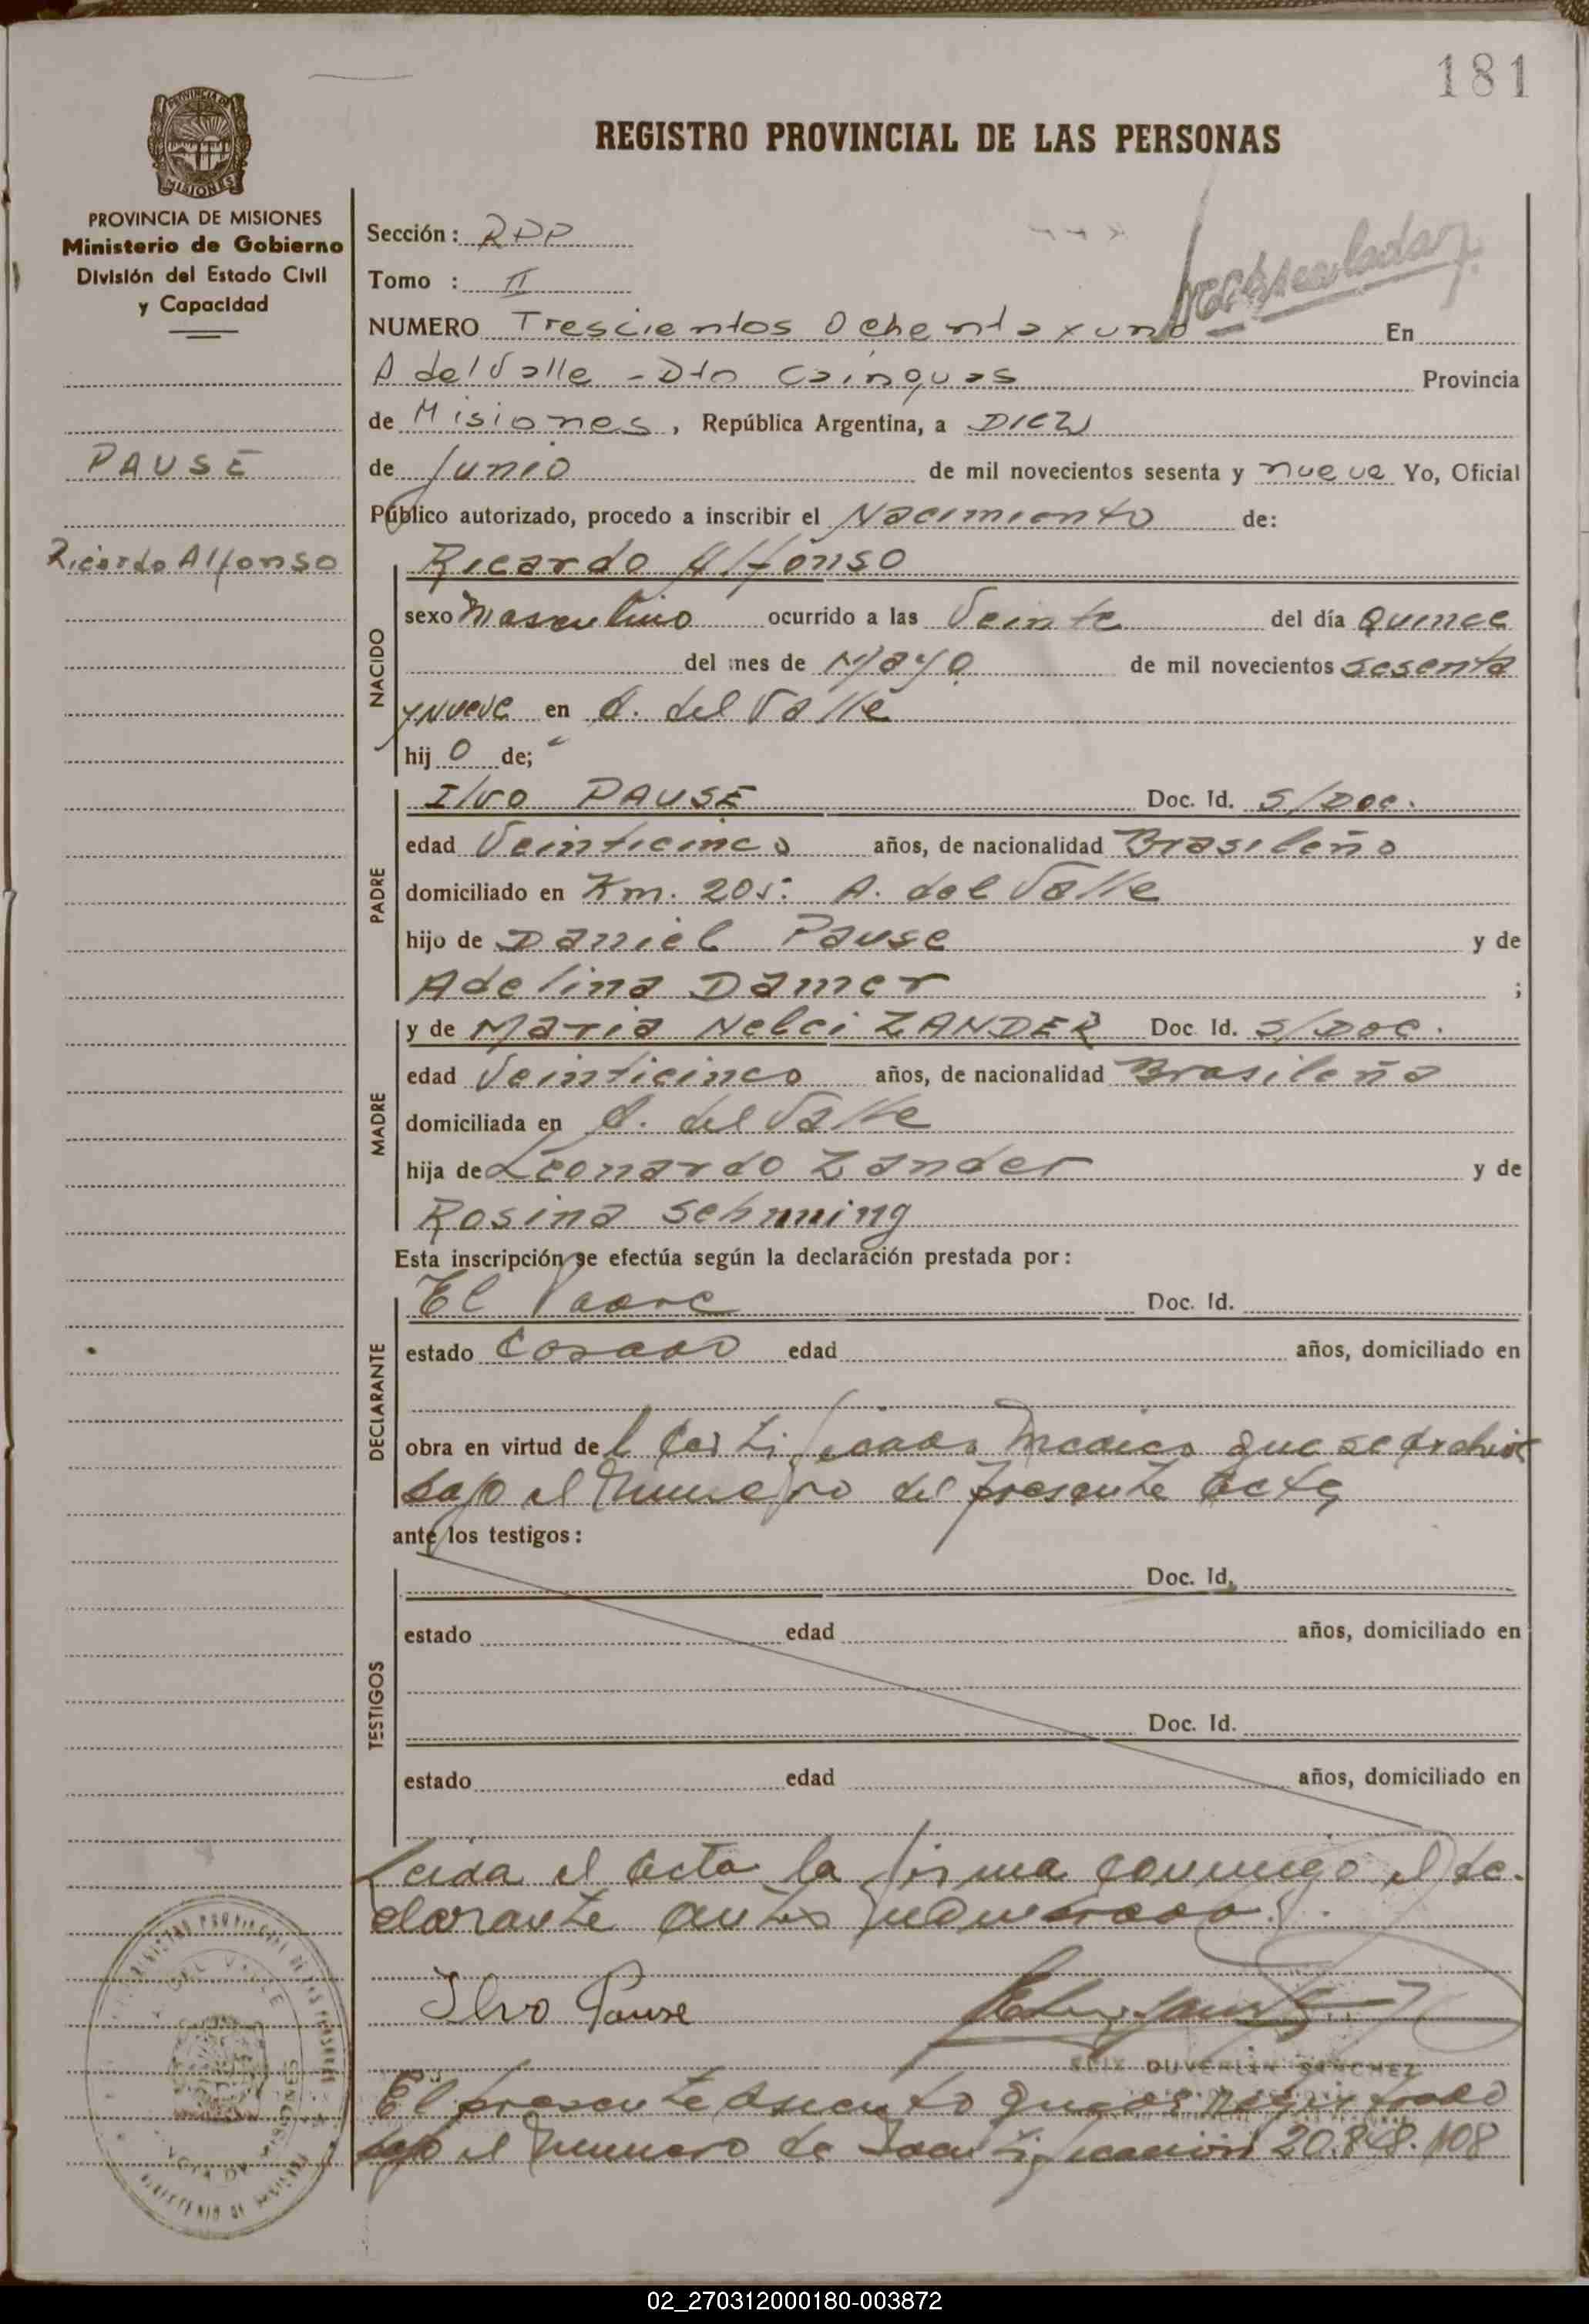 181
REGISTRO PROVINCIAL DE LAS PERSONAS
PROVINCIA DE MISIONES
Ministerio de Gobierno
División del Estado Civil
y Capacidad
PAUSE
Ricardo Alfonso
Sección: RPP
Tomo : II
NUMERO Trescientos Ochenta y uno En
A del Valle - Dto Cainguas Provincia
de Misiones, República Argentina, a DIEZ
de Junio de mil novecientos sesenta y nueve Yo, Oficial
Público autorizado, procedo a inscribir el Nacimiento de:
NACIDO
Ricardo Alfonso
sexo Masculino ocurrido a las Veinte del día Quince
del mes de Mayo de mil novecientos sesenta
y nueve en A. del Valle
hij o de;
PADRE
Ilvo PAUSE Doc. Id. S/Doc.
edad Veinticinco años, de nacionalidad Brasileño
domiciliado en Km. 205: A. del Valle
hijo de Daniel Pause y de
Adelina Damer ;
MADRE
y de Maria Nelci ZANDER Doc. Id. S/Doc.
edad Veinticinco años, de nacionalidad Brasileña
domiciliada en A. del Valle
hija de Leonardo Zander y de
Rosina
Esta inscripción se efectúa según la declaración prestada por:
DECLARANTE
El Padre Doc. Id.
estado Casado edad años, domiciliado en
obra en virtud de l Certificado Medico que se archiva
bajo el Numero del presente acta
ante los testigos:
TESTIGOS
Doc. Id.
estado edad años, domiciliado en
Doc. Id.
estado edad años, domiciliado en
Leida el acta la firma conmigo el de-
clarante antes
Ilvo Pause
DUVERLIN SANCHEZ
El presente asiento queda registrado
bajo el Numero de Identificación 20.848.108
02_270312000180-003872